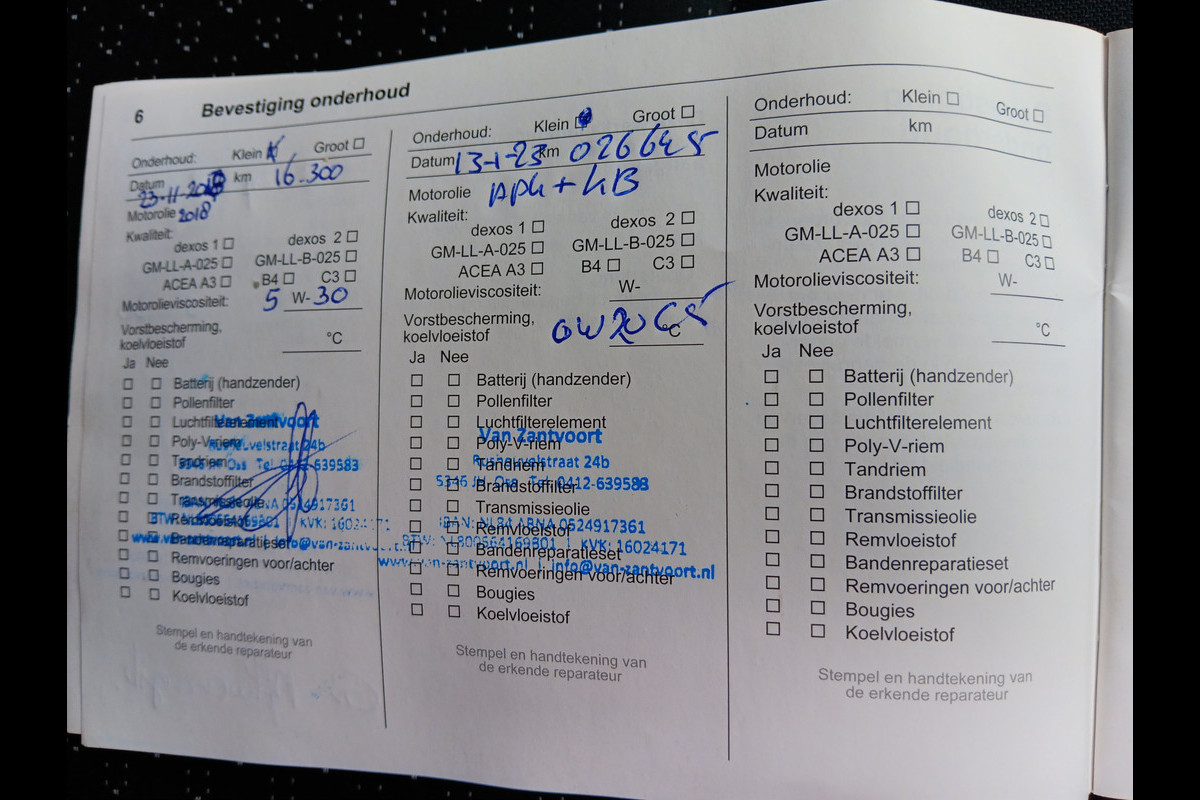 6 Bevestiging onderhoud
Onderhoud: Klein Groot
Datum 23-11-2018 km 16.300
Motorolie 2018
Kwaliteit:
dexos 1 dexos 2
GM-LL-A-025 GM-LL-B-025
ACEA A3 B4 C3
Motorolieviscositeit: 5 W- 30
Vorstbescherming,
koelvloeistof °C
Ja Nee
Batterij (handzender)
Pollenfilter
Luchtfilterelement
Poly-V-riem
Tandriem
Brandstoffilter
Transmissieolie
Remvloeistof
Bandenreparatieset
Remvoeringen voor/achter
Bougies
Koelvloeistof
Van Zantvoort
24b
Oss Tel 0412-639583
0524917361
KVK: 16024171
Stempel en handtekening van
de erkende reparateur
Onderhoud: Klein Groot
Datum 13-1-23 km 026645
Motorolie APK + KB
Kwaliteit:
dexos 1 dexos 2
GM-LL-A-025 GM-LL-B-025
ACEA A3 B4 C3
Motorolieviscositeit: W-
Vorstbescherming,
koelvloeistof °C
0W20 C5
Ja Nee
Batterij (handzender)
Pollenfilter
Luchtfilterelement
Poly-V-riem
Tandriem
Brandstoffilter
Transmissieolie
Remvloeistof
Bandenreparatieset
Remvoeringen voor/achter
Bougies
Koelvloeistof
Van Zantvoort
24b
Oss Tel. 0412-639583
IBAN: NL84 ABNA 0524917361
BTW: NL800564169B01 | KVK: 16024171
www.van-zantvoort.nl | info@van-zantvoort.nl
Stempel en handtekening van
de erkende reparateur
Onderhoud: Klein Groot
Datum km
Motorolie
Kwaliteit:
dexos 1 dexos 2
GM-LL-A-025 GM-LL-B-025
ACEA A3 B4 C3
Motorolieviscositeit: W-
Vorstbescherming,
koelvloeistof °C
Ja Nee
Batterij (handzender)
Pollenfilter
Luchtfilterelement
Poly-V-riem
Tandriem
Brandstoffilter
Transmissieolie
Remvloeistof
Bandenreparatieset
Remvoeringen voor/achter
Bougies
Koelvloeistof
Stempel en handtekening van
de erkende reparateur